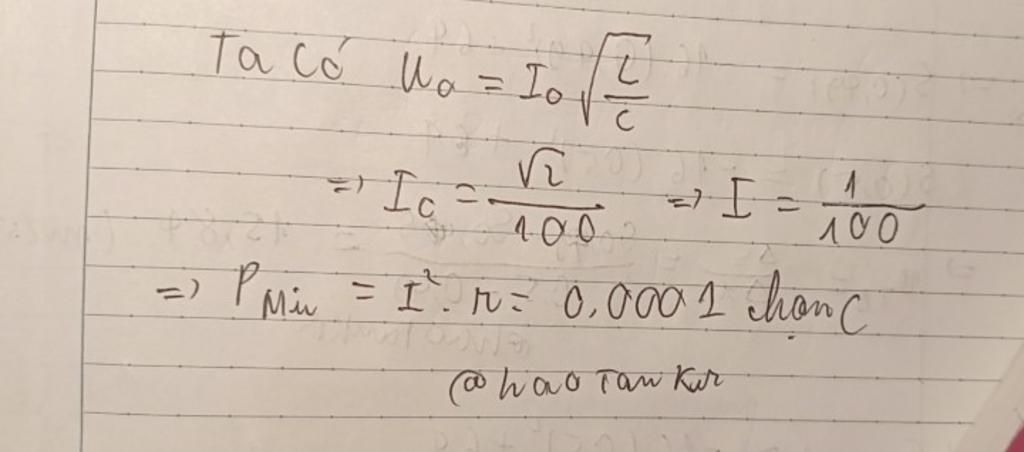 Ta Có U₀ = I₀ √(L/C)
=> I₀ = √2/100 => I = 1/100
=> P Min = I² . r = 0,0001 chọn C